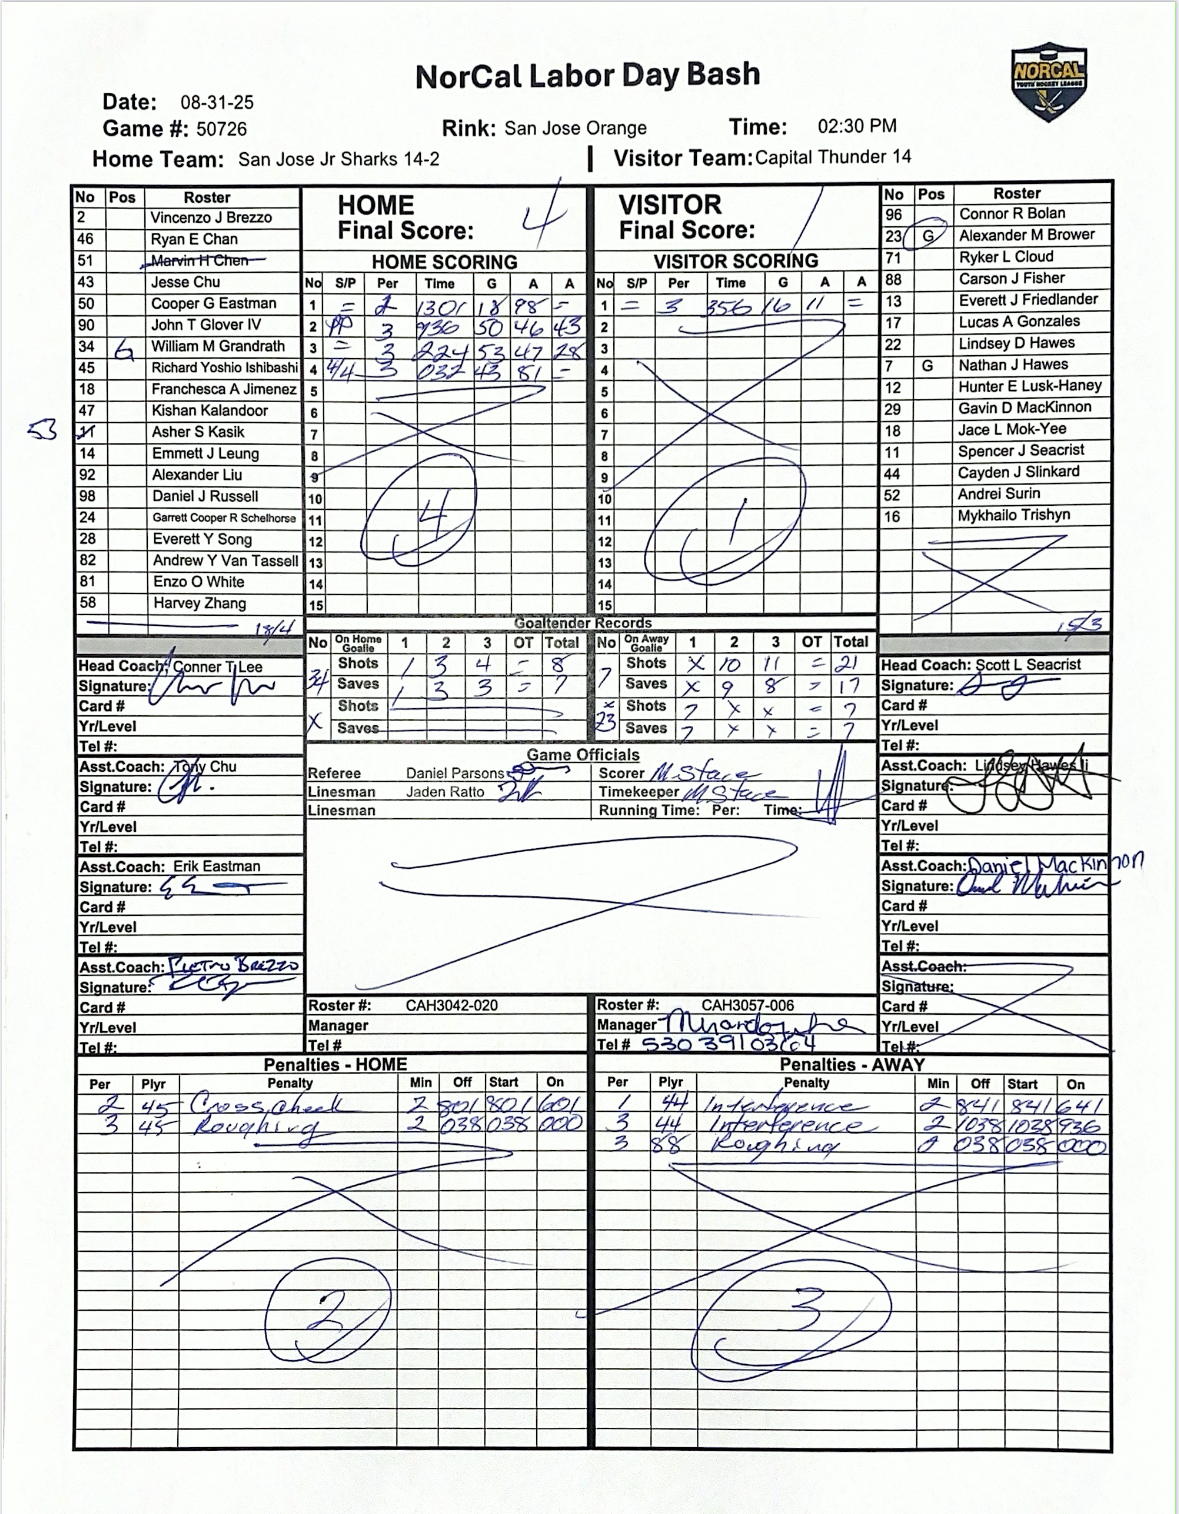 NorCal Labor Day Bash
NORCAL
YOUTH HOCKEY LEAGUE
Date: 08-31-25
Game #: 50726 Rink: San Jose Orange Time: 02:30 PM
Home Team: San Jose Jr Sharks 14-2 Visitor Team: Capital Thunder 14
No Pos Roster
2 Vincenzo J Brezzo
46 Ryan E Chan
51 Marvin H Chen
43 Jesse Chu
50 Cooper G Eastman
90 John T Glover IV
34 G William M Grandrath
45 Richard Yoshio Ishibashi
18 Franchesca A Jimenez
47 Kishan Kalandoor
53 Asher S Kasik
14 Emmett J Leung
92 Alexander Liu
98 Daniel J Russell
24 Garrett Cooper R Schelhorse
28 Everett Y Song
82 Andrew Y Van Tassell
81 Enzo O White
58 Harvey Zhang
18/4
HOME
Final Score: 4
HOME SCORING
No S/P Per Time G A A
1 = 2 1301 18 98 -
2 PP 3 936 50 46 43
3 = 3 224 53 47 28
4 4/4 3 032 43 81 -
5
6
7
8
9
10
11
12
13
14
15
4
VISITOR
Final Score: 1
VISITOR SCORING
No S/P Per Time G A A
1 = 3 356 16 11 =
2
3
4
5
6
7
8
9
10
11
12
13
14
15
1
No Pos Roster
96 Connor R Bolan
23 G Alexander M Brower
71 Ryker L Cloud
88 Carson J Fisher
13 Everett J Friedlander
17 Lucas A Gonzales
22 Lindsey D Hawes
7 G Nathan J Hawes
12 Hunter E Lusk-Haney
29 Gavin D MacKinnon
18 Jace L Mok-Yee
11 Spencer J Seacrist
44 Cayden J Slinkard
52 Andrei Surin
16 Mykhailo Trishyn
15/3
Goaltender Records
No On Home Goalie 1 2 3 OT Total
34 Shots 1 3 4 - 8
Saves 1 3 3 = 7
X Shots
Saves
No On Away Goalie 1 2 3 OT Total
7 Shots X 10 11 = 21
Saves X 9 8 = 17
x 23 Shots 7 x x = 7
Saves 7 x x = 7
Head Coach: Conner T Lee
Signature:
Card #
Yr/Level
Tel #:
Asst.Coach: Tony Chu
Signature:
Card #
Yr/Level
Tel #:
Asst.Coach: Erik Eastman
Signature:
Card #
Yr/Level
Tel #:
Asst.Coach: Pietro Brezzo
Signature:
Card #
Yr/Level
Tel #:
Game Officials
Referee Daniel Parsons
Linesman Jaden Ratto
Linesman
Scorer M Stace
Timekeeper M Stace
Running Time: Per: Time:
Roster #: CAH3042-020
Manager
Tel #
Roster #: CAH3057-006
Manager
Tel # 530 391 0364
Head Coach: Scott L Seacrist
Signature:
Card #
Yr/Level
Tel #:
Asst.Coach: Lindsey Hawes Ii
Signature:
Card #
Yr/Level
Tel #:
Asst.Coach: Daniel MacKinnon
Signature:
Card #
Yr/Level
Tel #:
Asst.Coach:
Signature:
Card #
Yr/Level
Tel #:
Penalties - HOME
Per Plyr Penalty Min Off Start On
2 45 Cross check 2 801 801 601
3 45 Roughing 2 038 038 000
2
Penalties - AWAY
Per Plyr Penalty Min Off Start On
1 44 Interference 2 841 841 641
3 44 Interference 2 1038 1038 936
3 88 Roughing 038 038 000
3